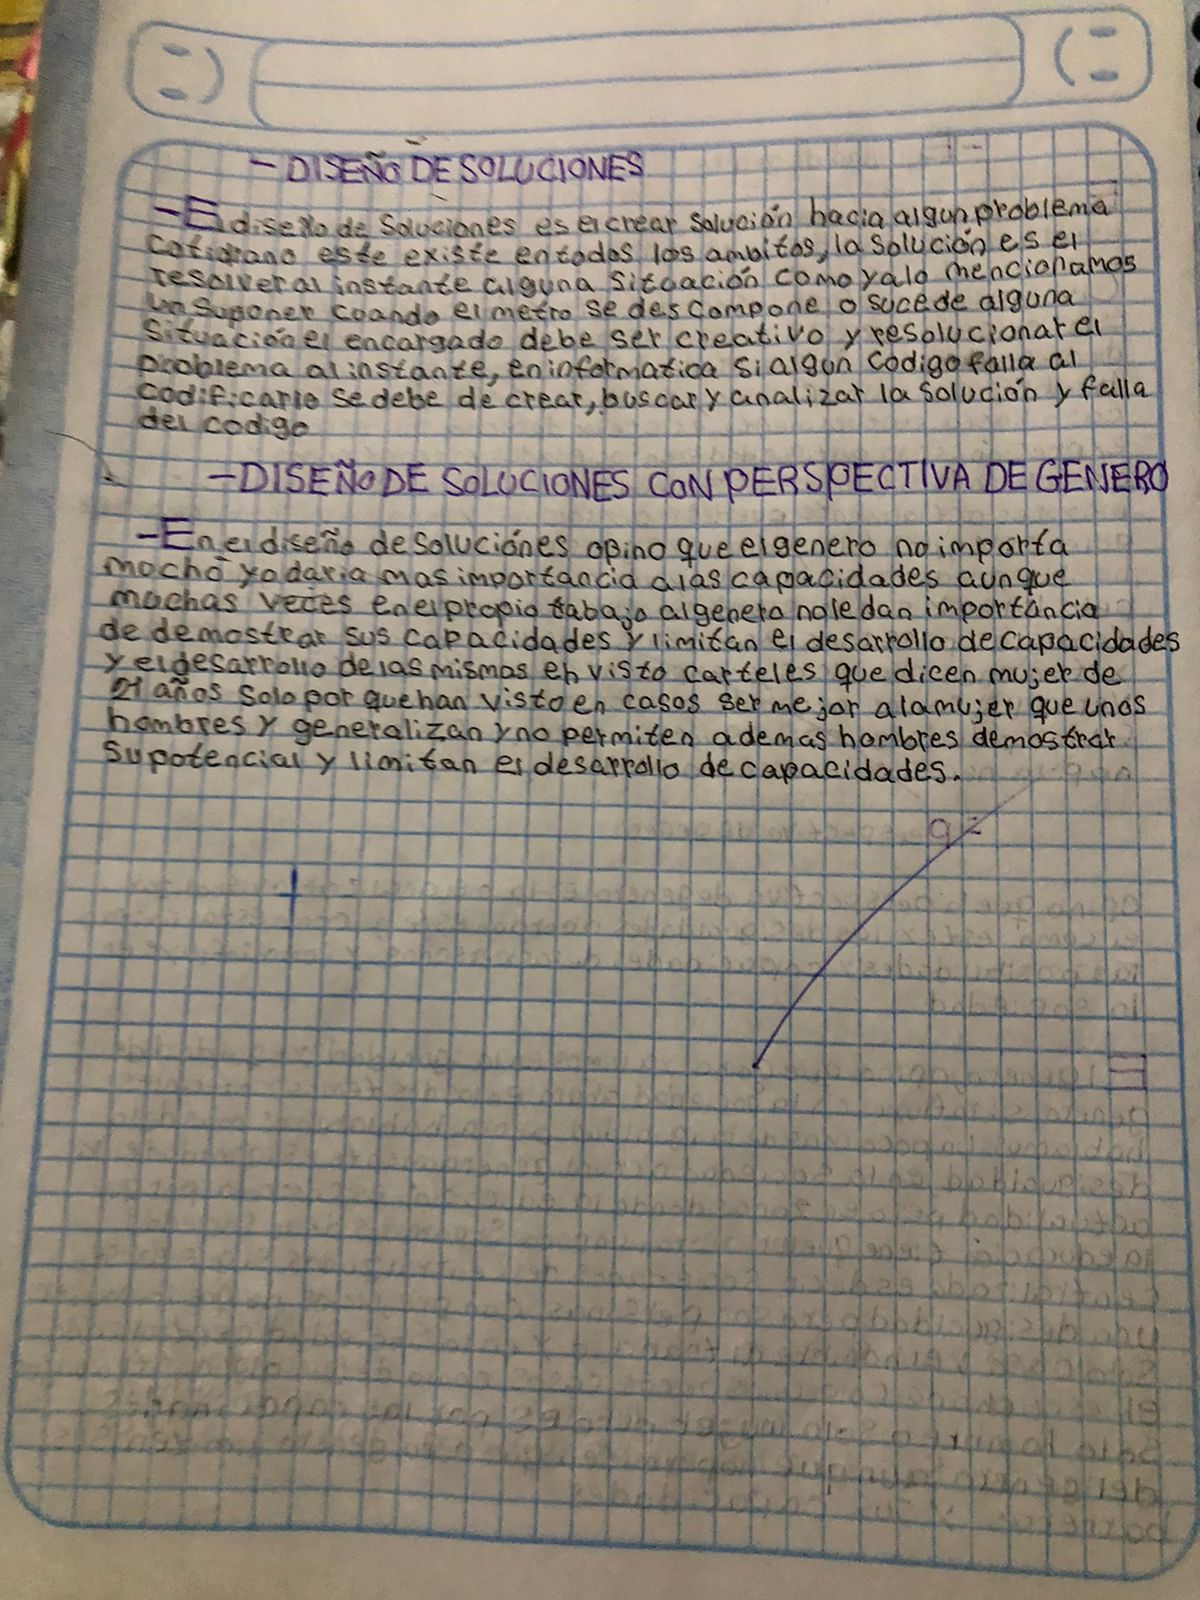 - DISEÑO DE SOLUCIONES
- El diseño de soluciones es el crear solución hacia algun problema
cotidiano este existe en todos los ambitos, la solución es el
resolver al instante alguna situación como ya lo mencionamos
un suponer cuando el metro se descompone o sucede alguna
situación el encargado debe ser creativo y resolucionar el
problema al instante, en informatica si algun codigo falla al
codificarlo se debe de crear, buscar y analizar la solución y falla
del codigo
- DISEÑO DE SOLUCIONES CON PERSPECTIVA DE GENERO
- En el diseño de soluciónes opino que el genero no importa
mucho yo daria mas importancia a las capacidades aunque
muchas veces en el propio tabajo al genero no le dan importancia
de demostrar sus capacidades y limitan el desarrollo de capacidades
y el desarrollo de las mismas eh visto carteles que dicen mujer de
21 años solo por que han visto en casos ser mejor a la mujer que unos
hombres y generalizan y no permiten ademas hombres demostrar
su potencial y limitan el desarrollo de capacidades.